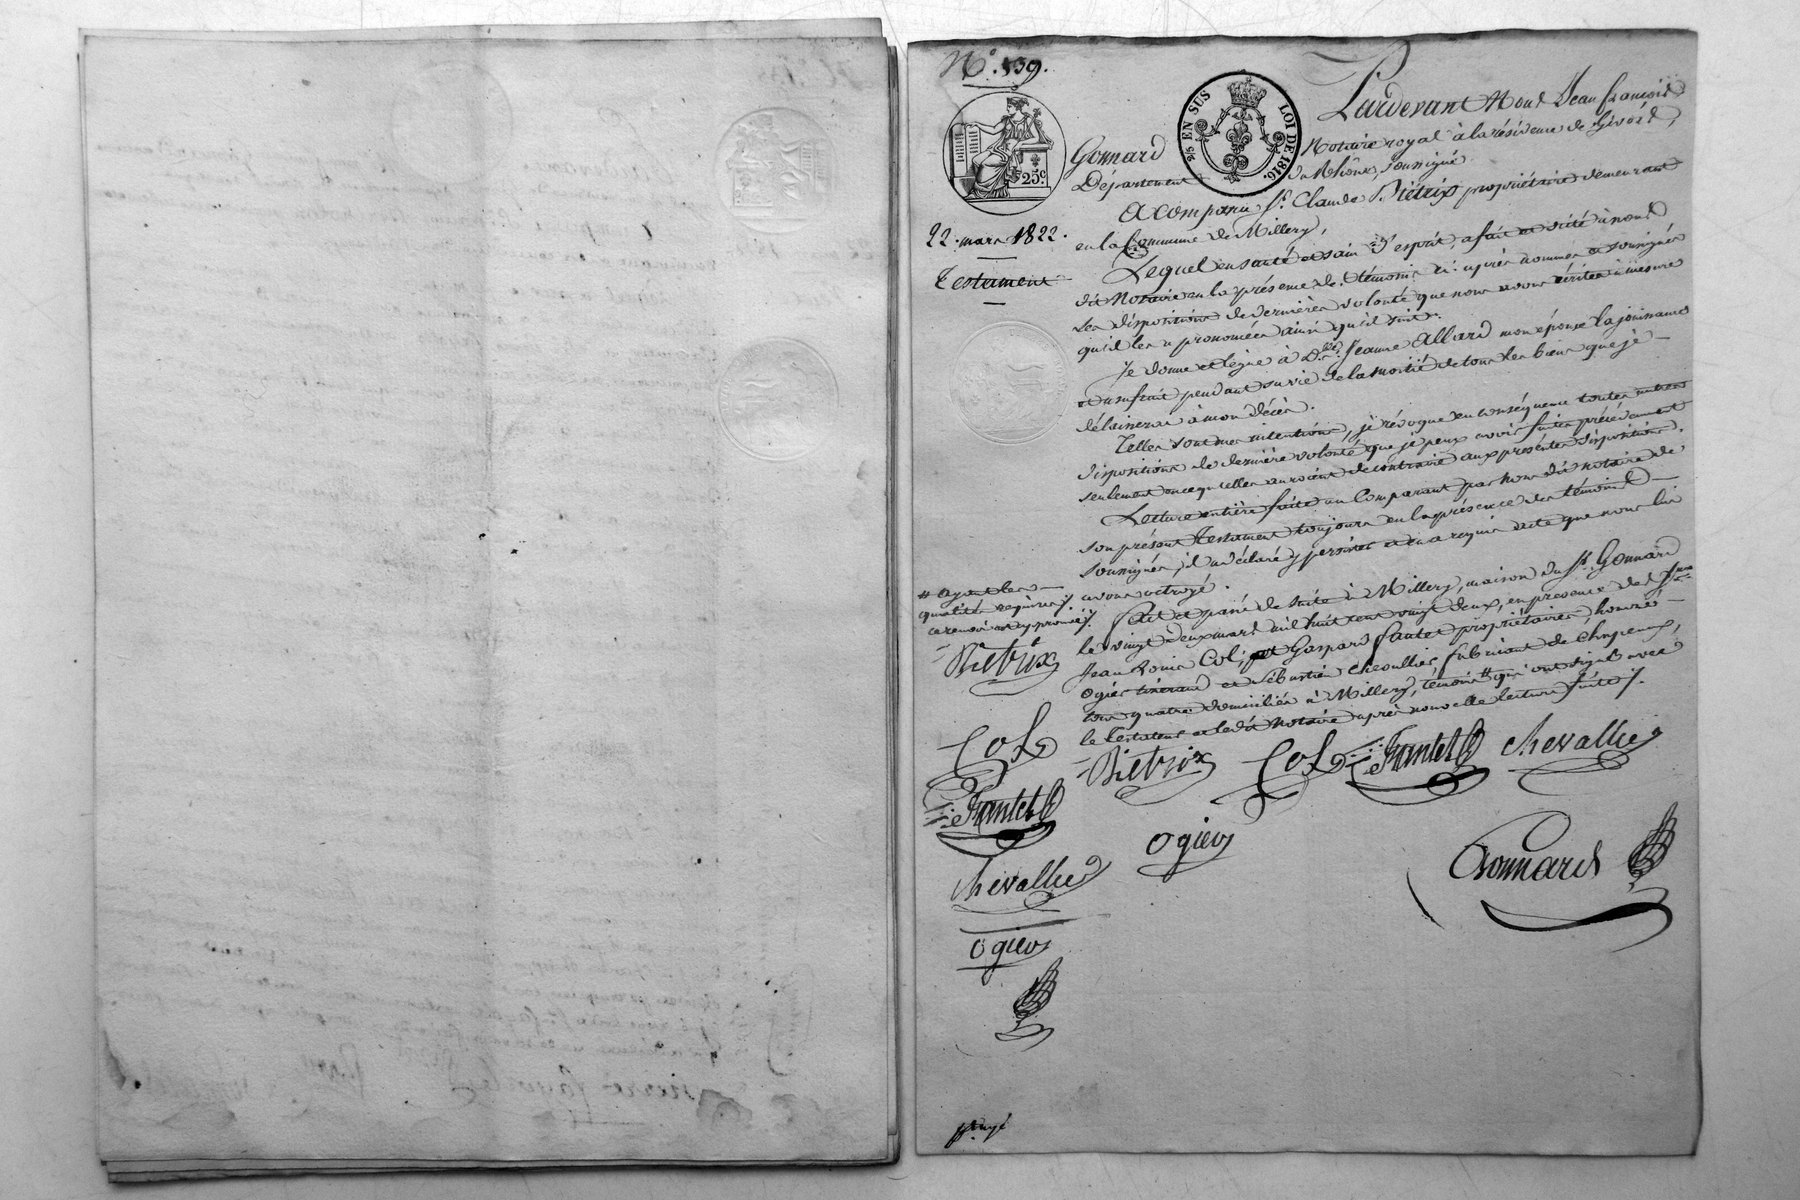 N.º 539.
25 c
2/5 EN SUS LOI DE 1816.
22. mars 1822.
Testament
Pardevant Nous Jean françois
Gonnard Notaire royal à la résidence de Givors,
Département du Rhône, soussigné.
A comparu Sr. Claude Piétrix propriétaire demeurant
en la Commune de Millery,
Lequel en santé et sain d'esprit, a fait et dicté à nous
dit Notaire en la présence des témoins ci-après nommés et soussignés
Les dispositions de dernière volonté que nous avons écrites à mesure
qu'il les a prononcées ainsi qu'il suit.
Je donne et lègue à Dlle. Jeanne Allard mon épouse la jouissance
et usufruit pendant sa vie de la moitié de tous les biens que je
délaisserai à mon décès.
Telles sont mes intentions, je révoque en conséquence toutes autres
dispositions de dernière volonté que je peux avoir faites précédemment
seulement en ce qu'elles auroient de contraire aux présentes dispositions.
Lecture entière faite au Comparant par nous dit notaire de
son présent Testament toujours en la présence des témoins
soussignés, il a déclaré y persister et en a requis acte que nous lui
avons octroyé.
Fait et passé de suite à Millery, maison du Sr. Gonnard
le vingt deux mars mil huit cent vingt deux, en présence des Srs.
Jean Louis Col, et Gaspard Fantet propriétaires, honoré
Ogier tisserand et Sébastien Chevallier, fabricant de chapeaux,
tous quatre domiciliés à Millery, témoins # qui ont signé avec
le Testateur et le dit Notaire après nouvelle lecture faite.
# ayant les
qualités requises
ce renvoi est approuvé
Piétrix
Col
Fantet
Chevallier
Ogier
Piétrix Col Fantet Chevallier
Ogier
Gonnard